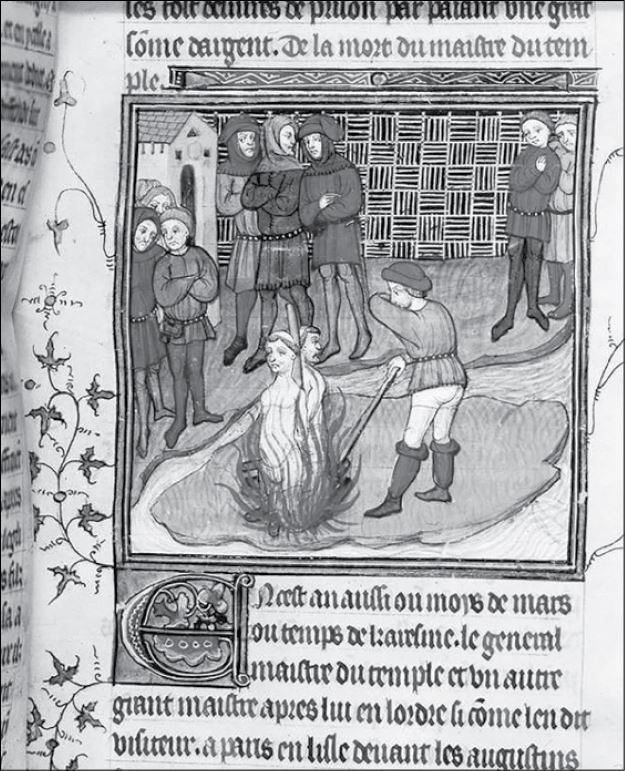 les deliures de prison par paiant vne grāt
sōme dargent. De la mort du maistre du tem
ple.
ENcest an aussi ou moys de mars
ou temps de karesme. le general
maistre du temple et vn autre
grant maistre apres lui en lordre si cōme len dit
visiteur. a paris en lisle deuant les augustins